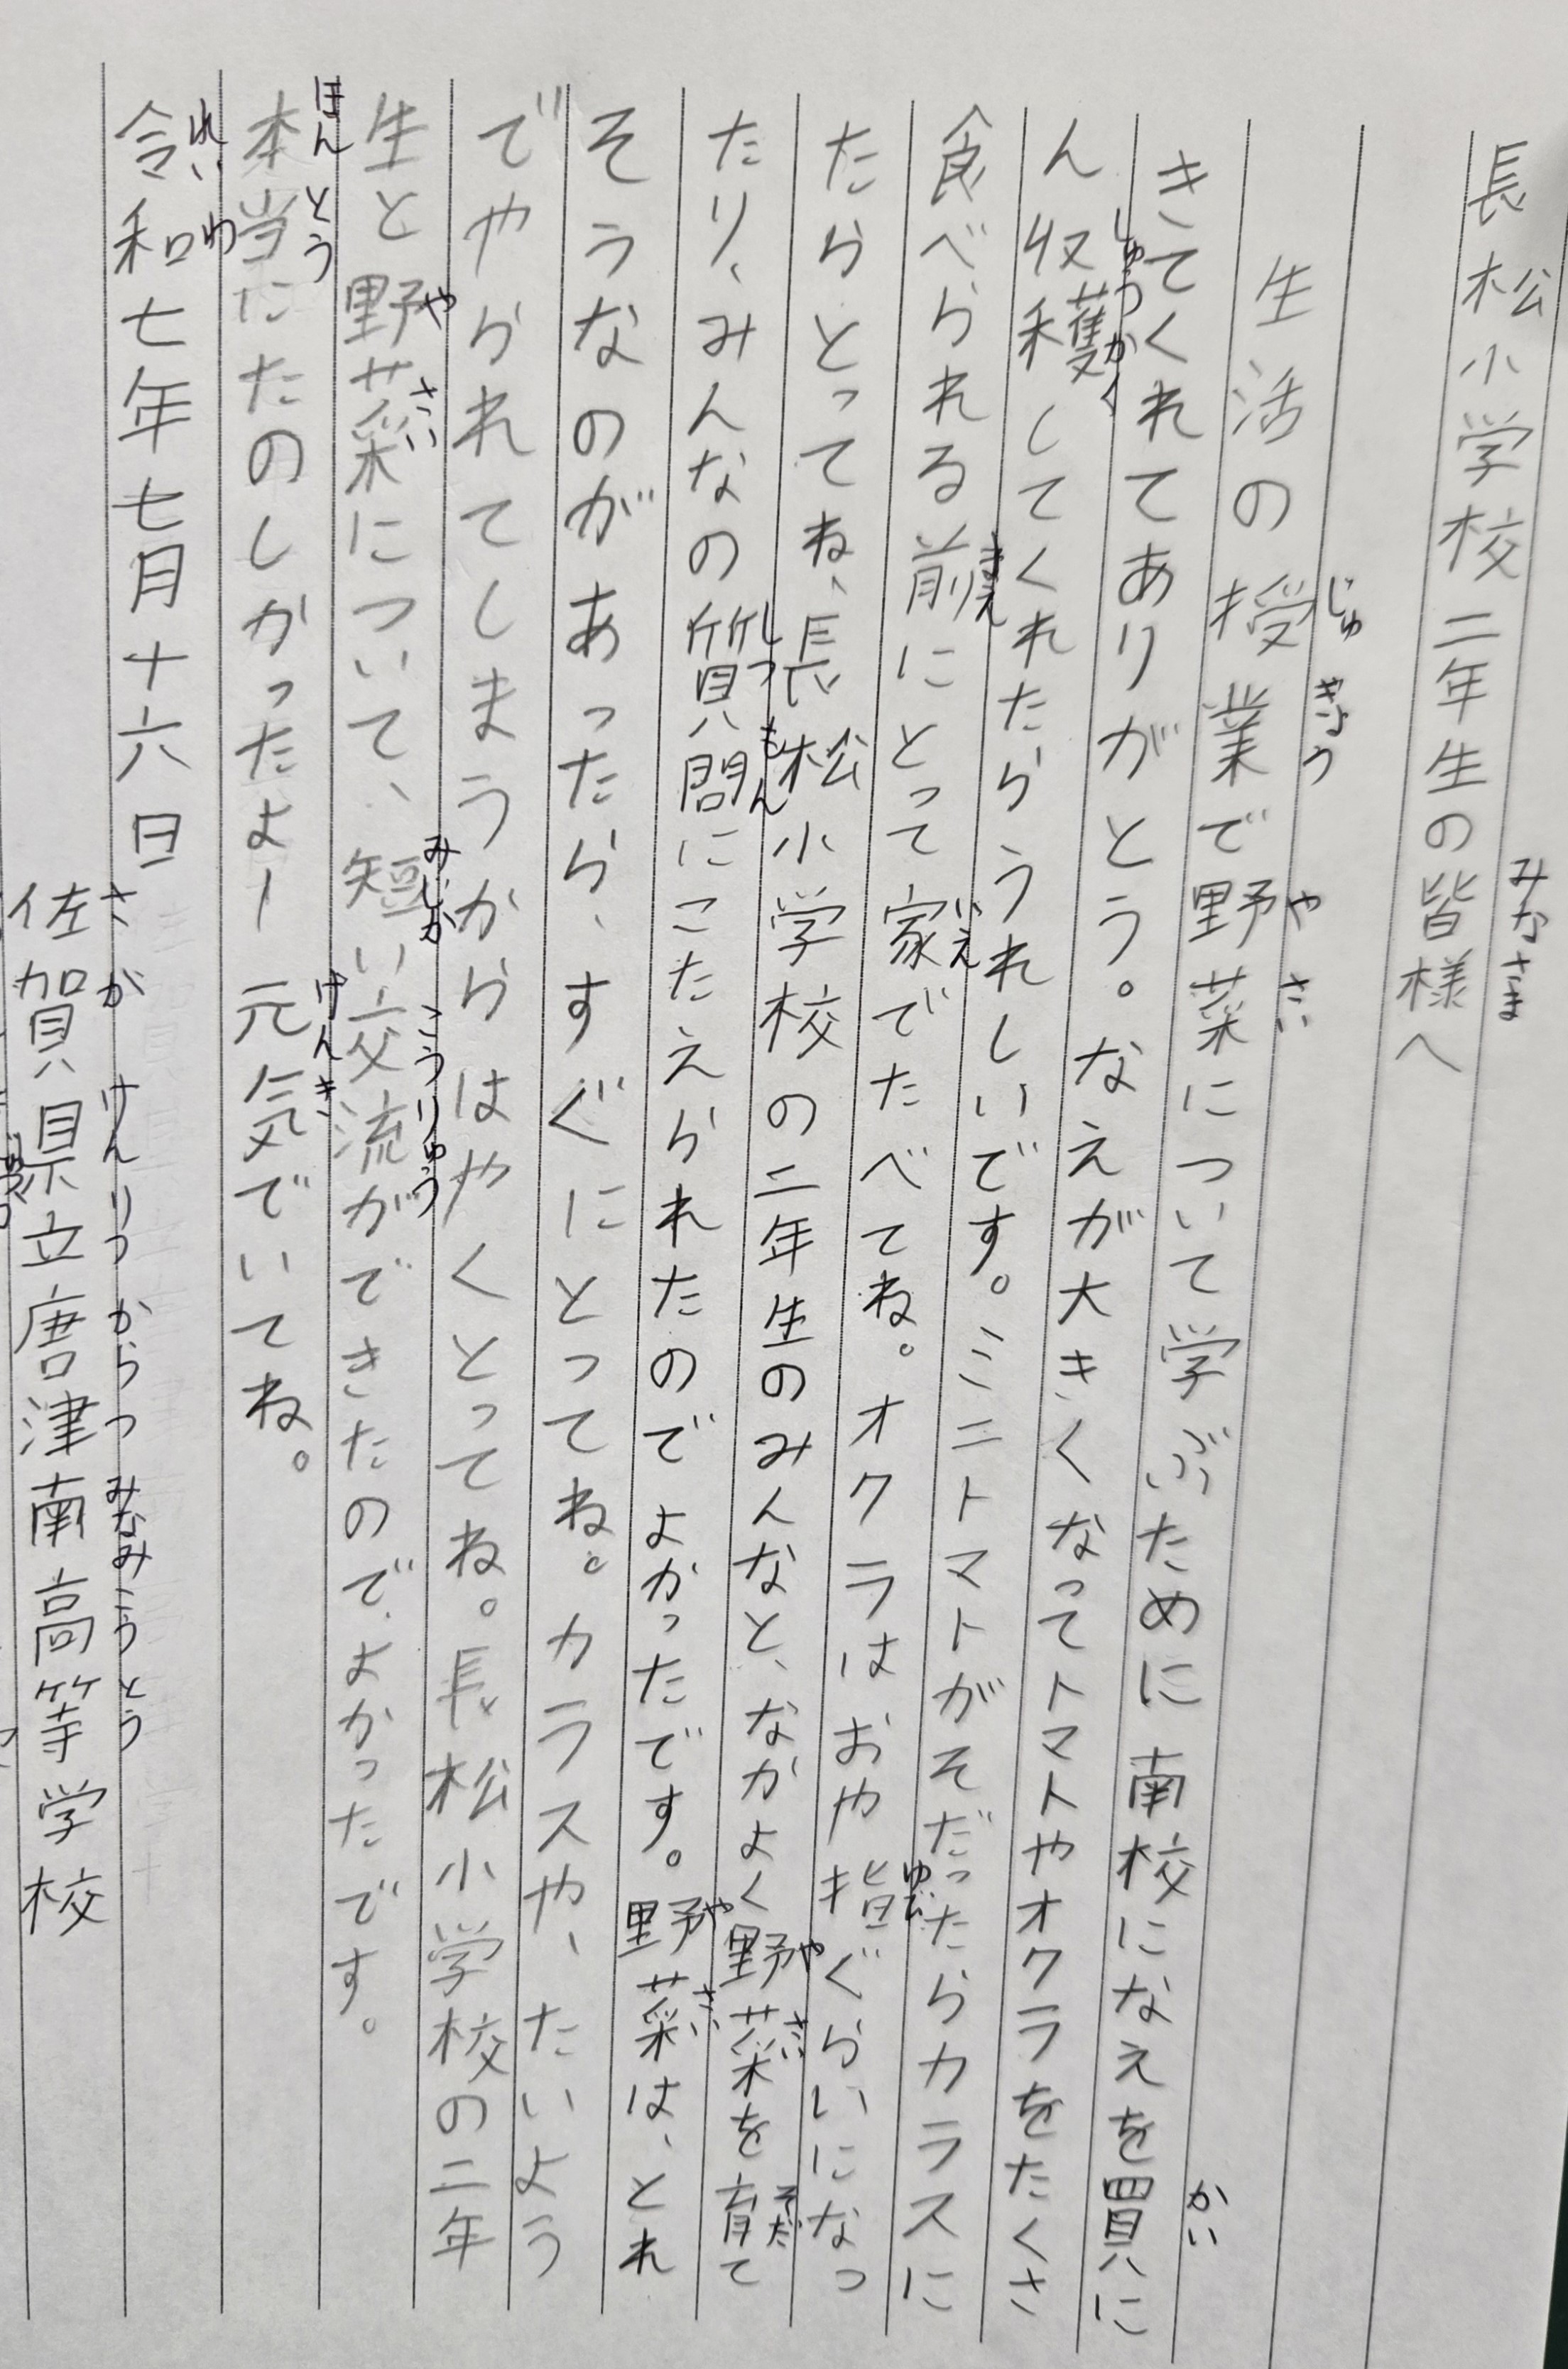 長松小学校二年生の皆様へ
生活の授業で野菜について学ぶために南校になえを買に
きてくれてありがとう。なえが大きくなってトマトやオクラをたくさ
ん収穫してくれたらうれしいです。ミニトマトがそだったらカラスに
食べられる前にとって家でたべてね。オクラはおや指ぐらいになっ
たらとってね、長松小学校の二年生のみんなと、なかよく野菜を育て
たり、みんなの質問にこたえられたのでよかったです。野菜は、とれ
そうなのがあったら、すぐにとってね。カラスや、たいよう
でやられてしまうからはやくとってね。長松小学校の二年
生と野菜について、短い交流ができたので、よかったです。
本当にたのしかったよー元気でいてね。
令和七年七月十六日
佐賀県立唐津南高等学校